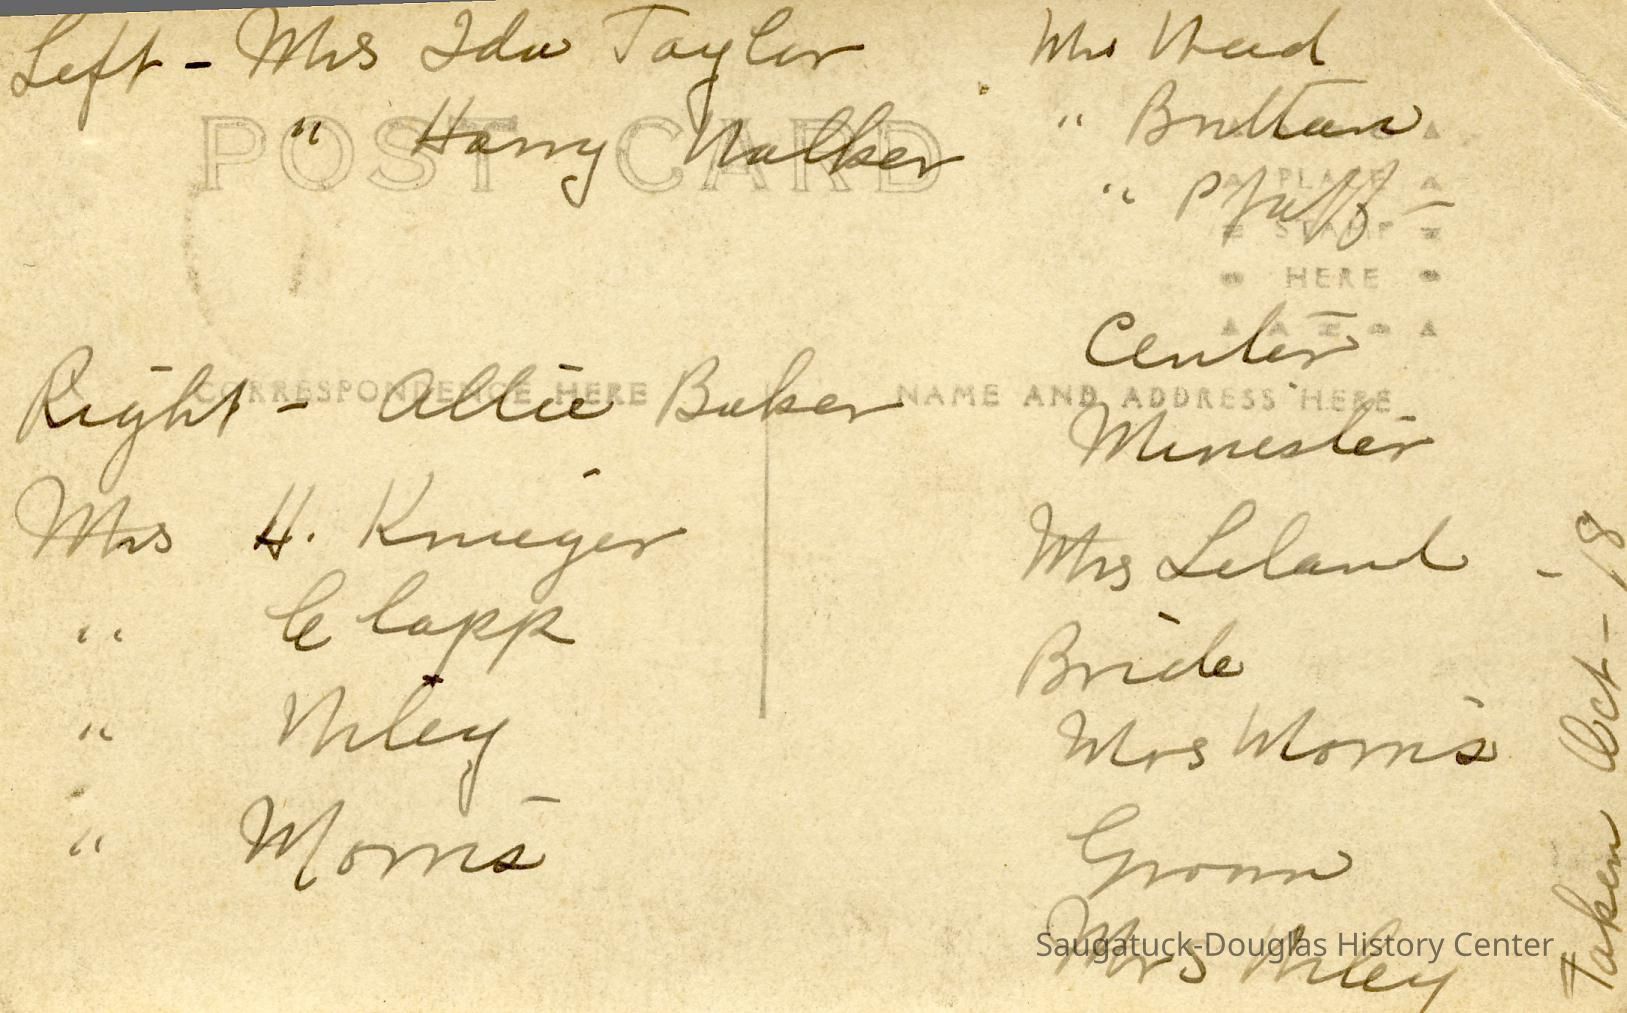 Left - Mrs Ida Taylor
" Harry Walker
Mrs Head
" Brittain
" Pfaff -
POST CARD
PLACE
STAMP
HERE
Right - Allie Baker
CORRESPONDENCE HERE
NAME AND ADDRESS HERE
Mrs H. Krueger
" Clapp
" Wiley
" Morris
Center
Minester
Mrs Leland
Bride
Mrs Morris
Groom
Mrs Wiley
Taken Oct - 18 -
Saugatuck-Douglas History Center